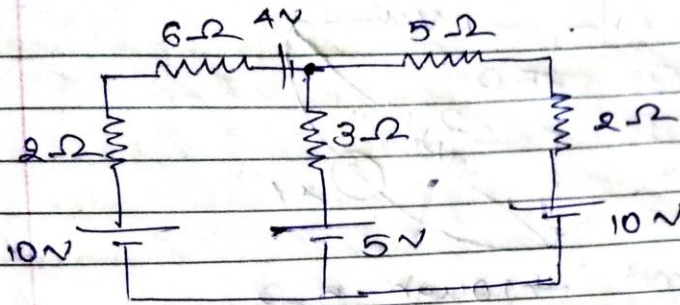 6Ω 4V 5Ω
2Ω 3Ω 2Ω
10V 5V 10V